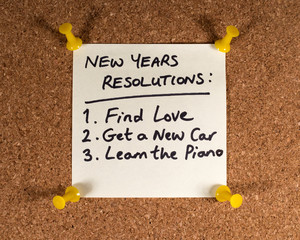 NEW YEARS
RESOLUTIONS:
1. Find Love
2. Get a New Car
3. Learn the Piano